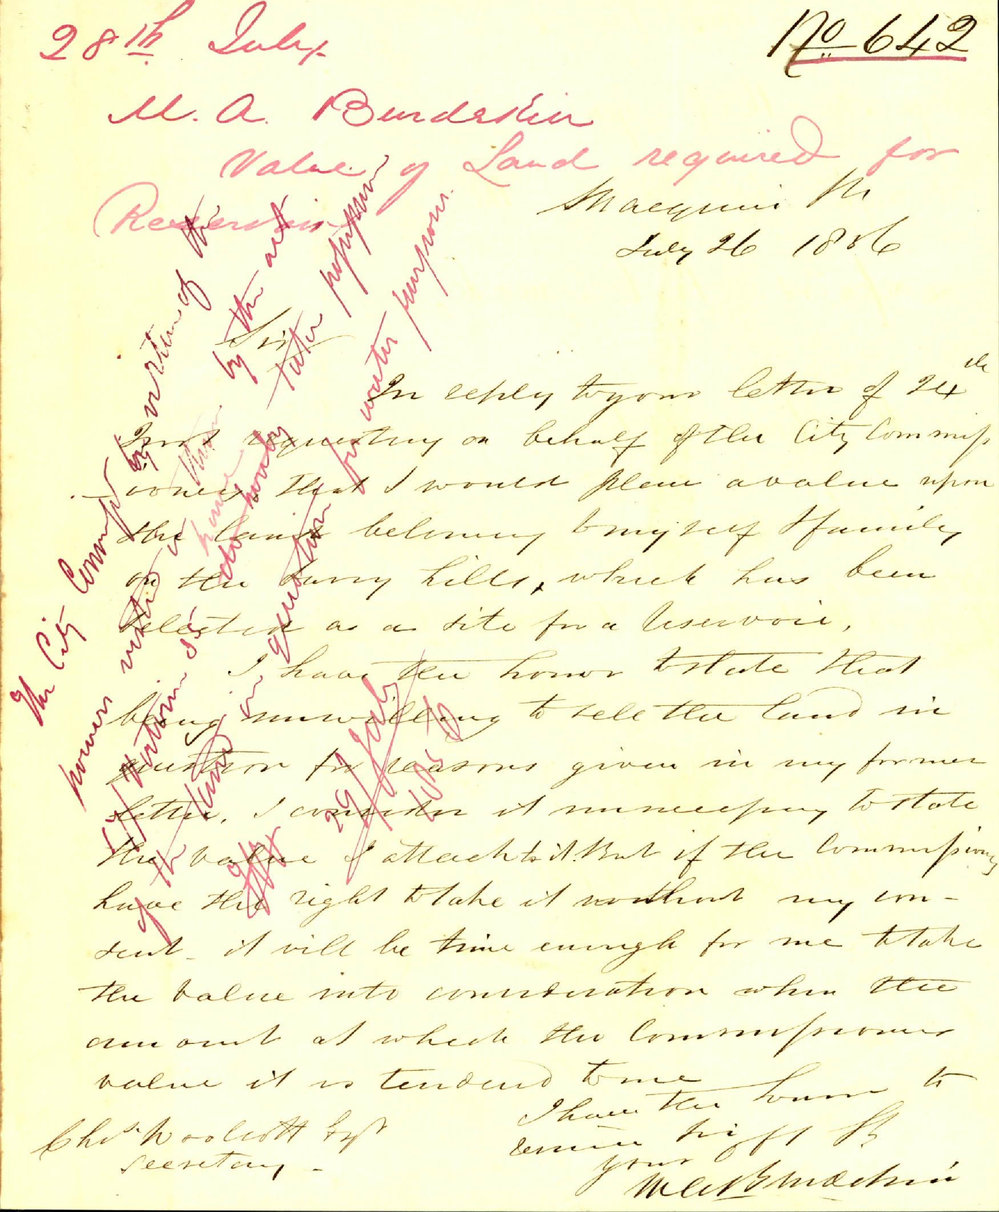 28th July
No 642
M. A. Burdekin
Value of Land required for
Reservoir
Macquarie St
July 26 1856
Sir
In reply to your letter of 24th
Inst requesting on behalf of the City Commiss
ioners that I would place a value upon
the land belonging to myself & family
on the Surry hills, which has been
selected as a site for a reservoir,
I have the honor to state that
being unwilling to sell the land in
question for reasons given in my former
letter, I consider it unnecessary to state
the value I attach to it. But if the Commissioners
have the right to take it without my con-
sent it will be time enough for me to take
the value into consideration when the
amount at which the Commissioners
value it is tendered to me
I have the honor to
remain Sir
your
M A Burdekin
Chs. Woolcott Esqr
Secretary
The City Commissrs by virtue of the
powers vested in them by the act
17 Victoria have taken possession
of the land in question for water purposes.
29/July
1856